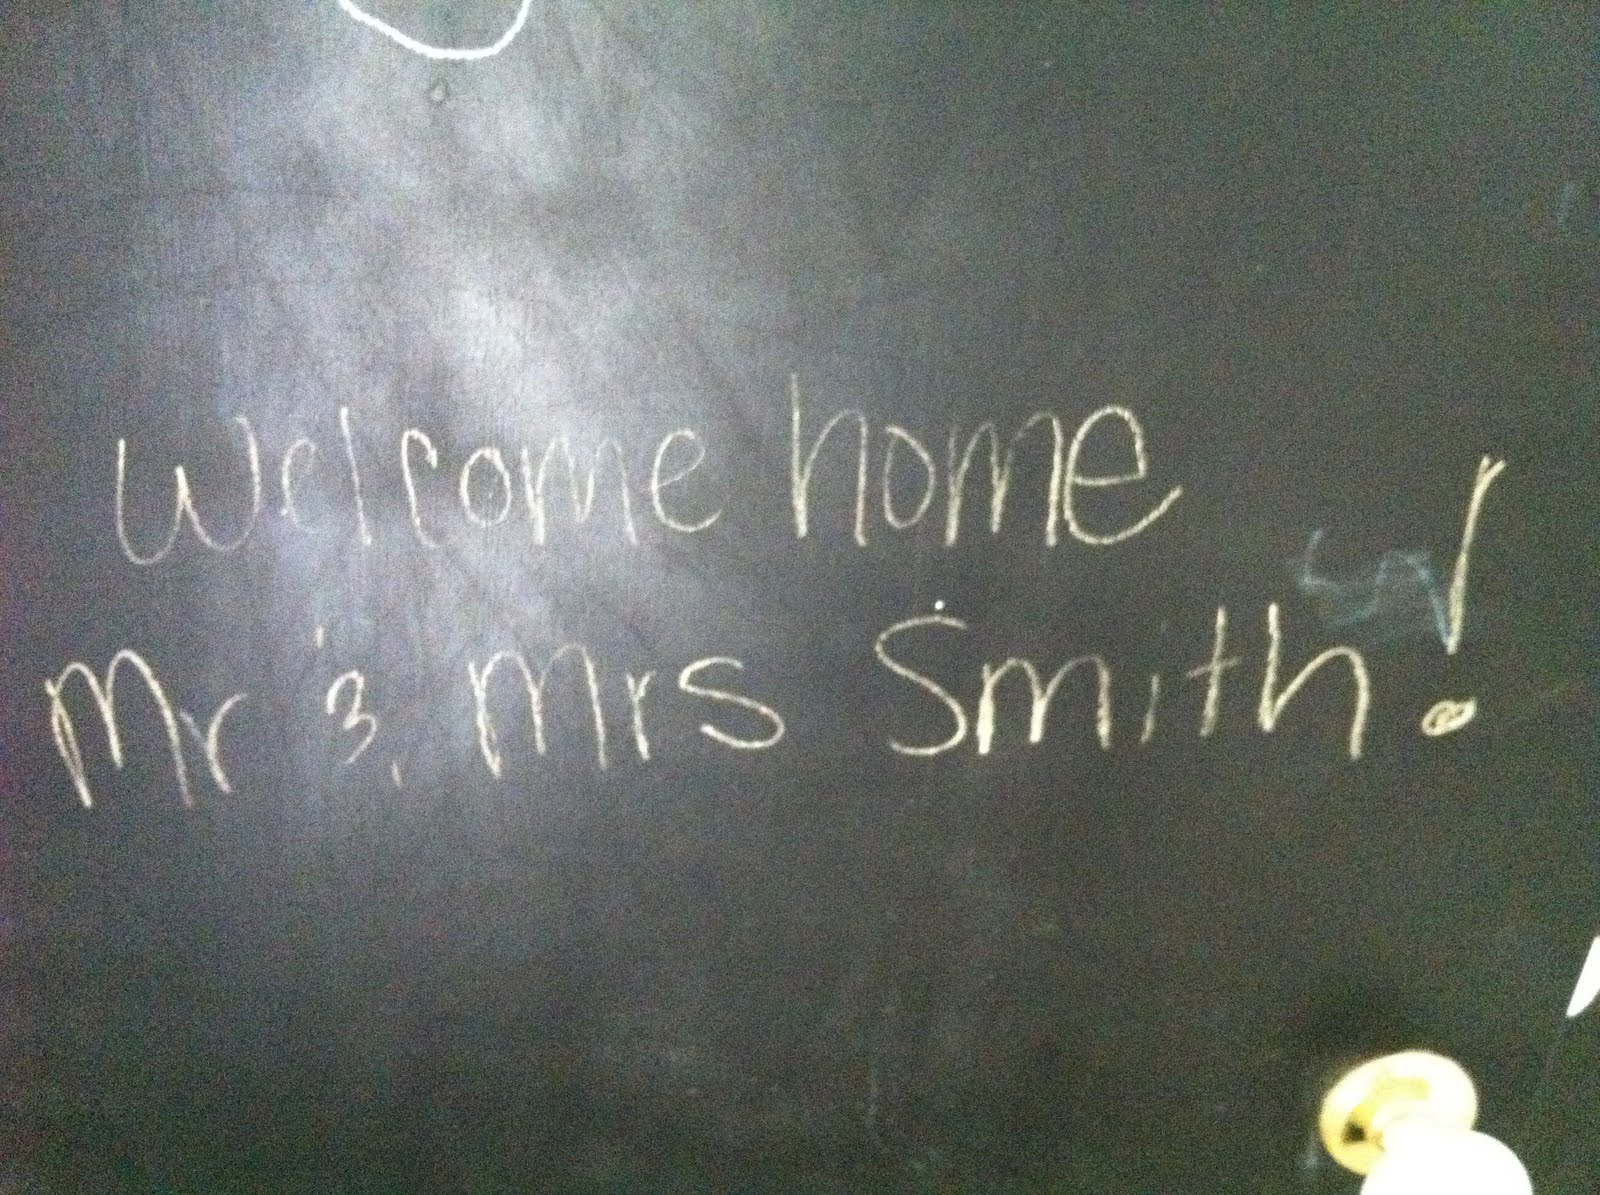 Welcome home
Mr & Mrs Smith!